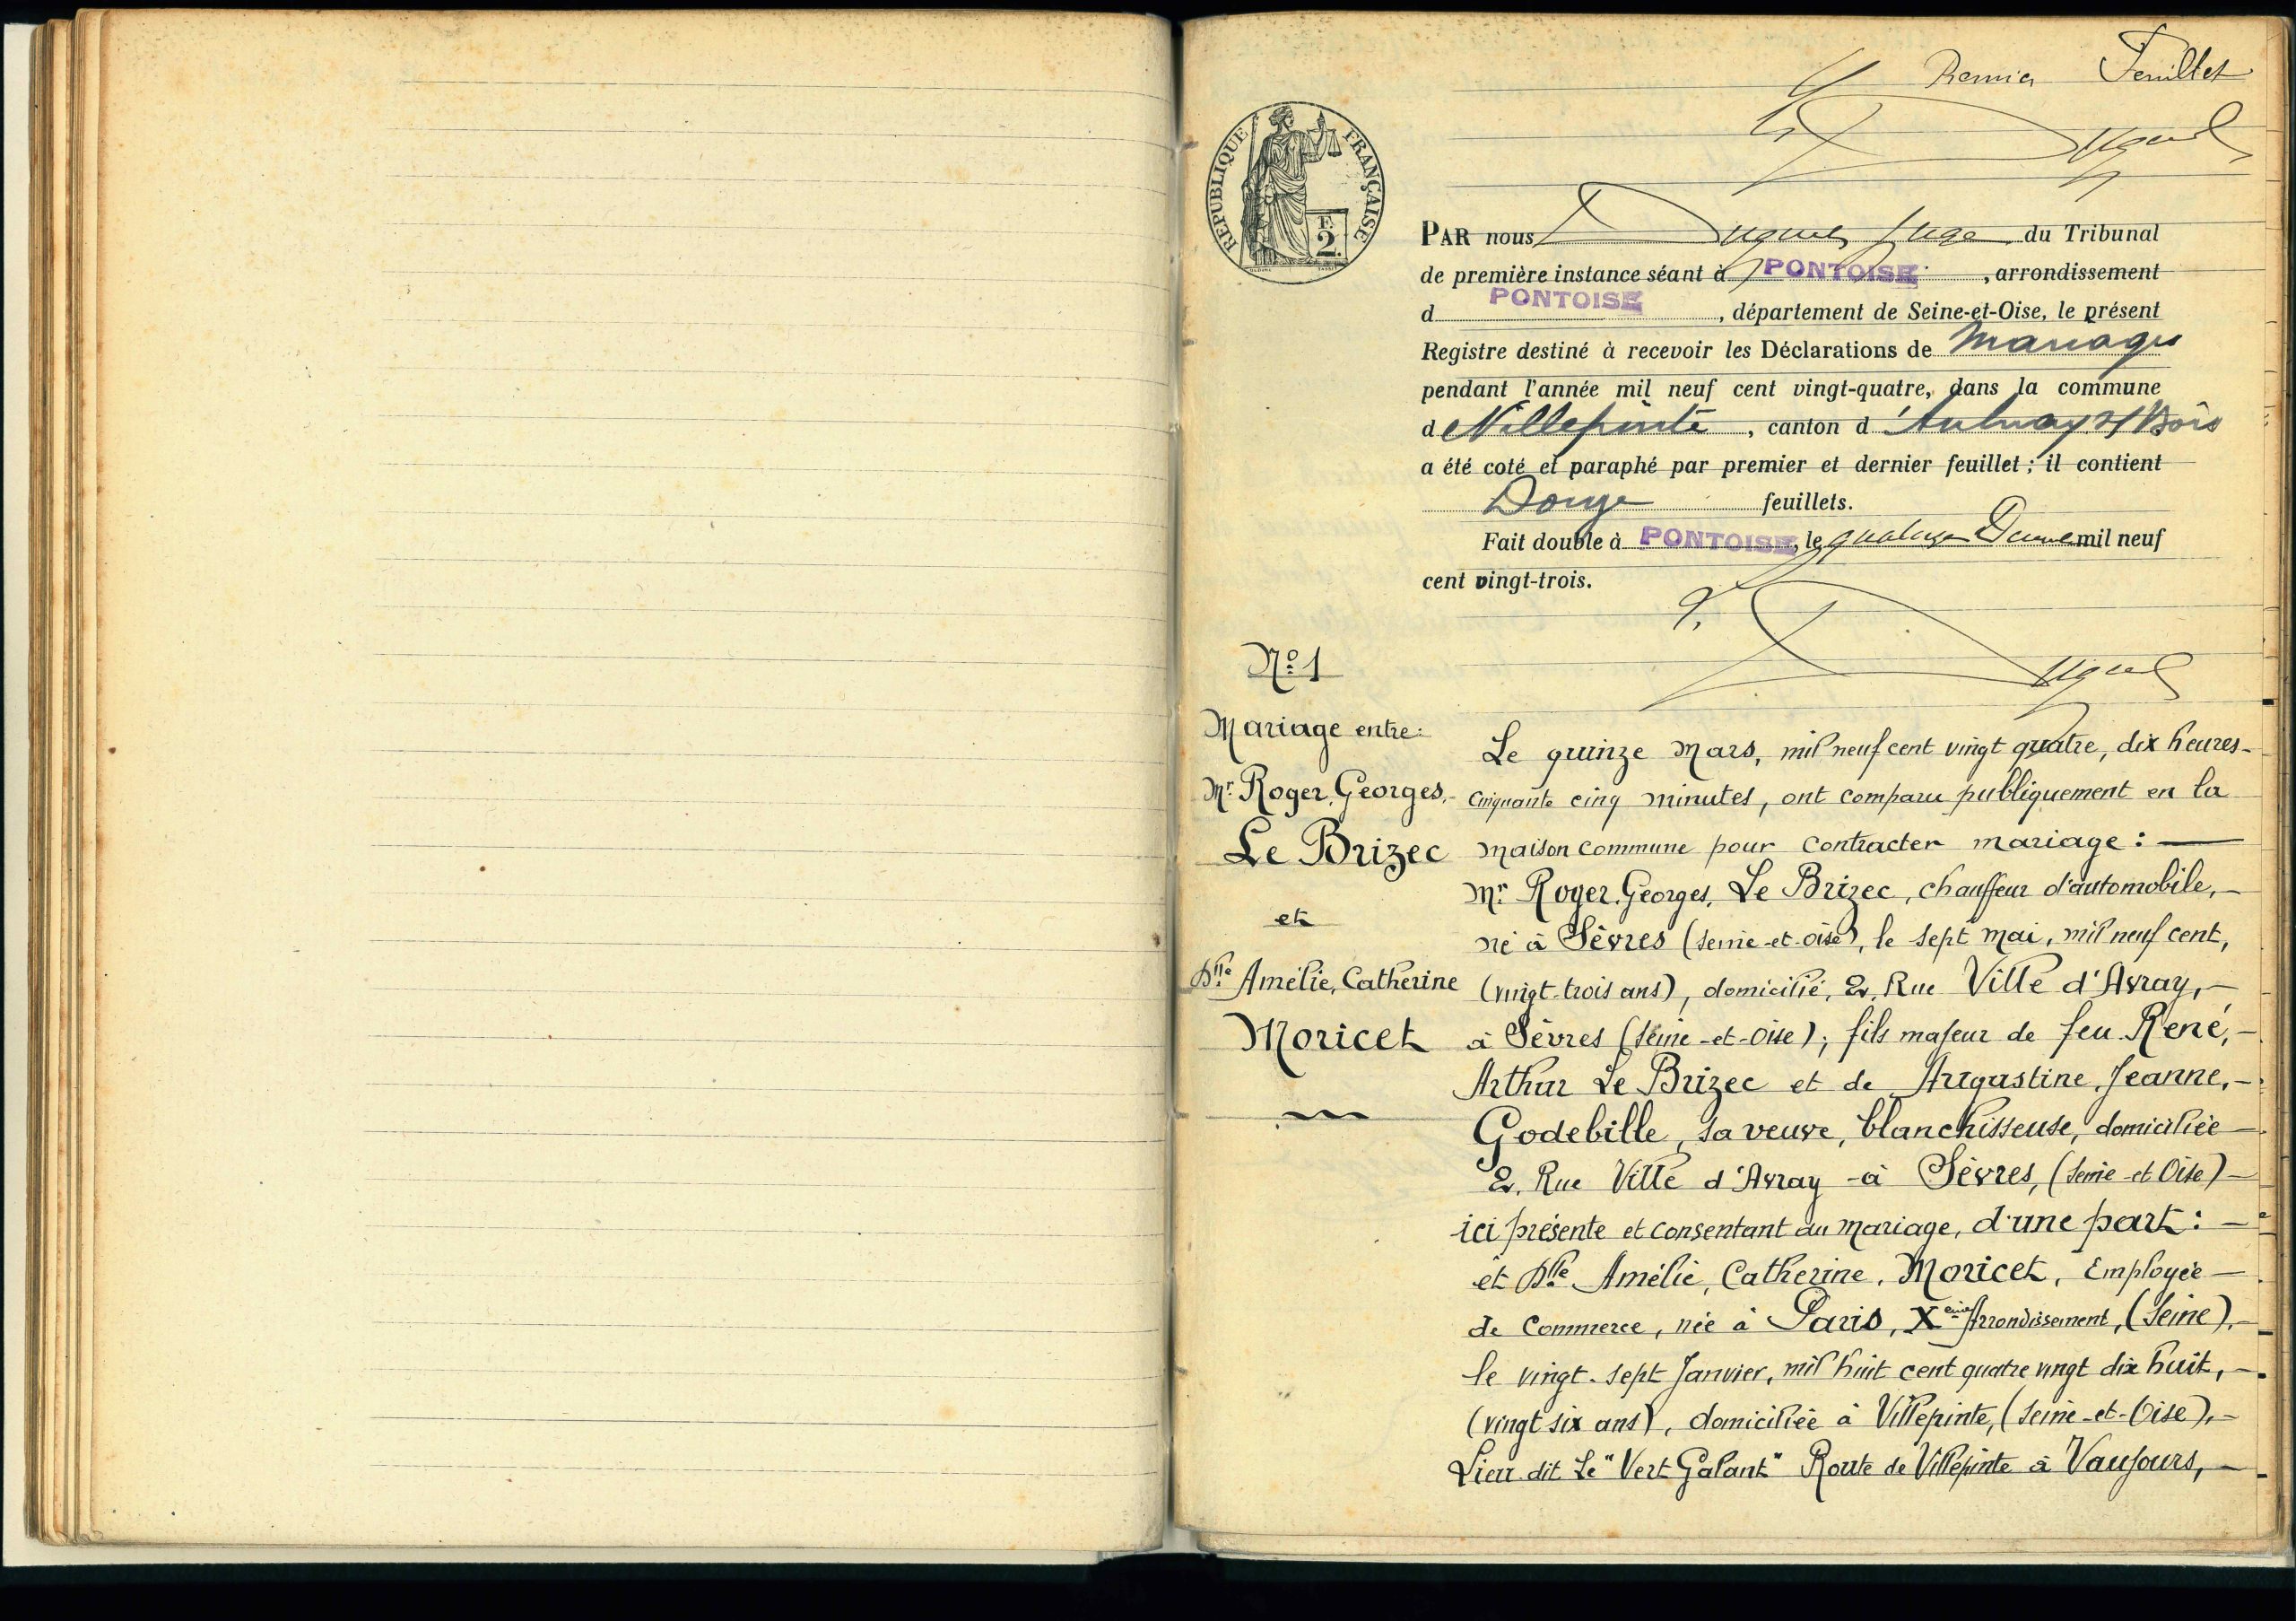 Premier Feuillet
RÉPUBLIQUE FRANÇAISE
F.
2
PAR nous Juge du Tribunal
de première instance séant à PONTOISE, arrondissement
d PONTOISE, département de Seine-et-Oise, le présent
Registre destiné à recevoir les Déclarations de Mariages
pendant l'année mil neuf cent vingt-quatre, dans la commune
de Villepinte, canton d'Aulnay s/ Bois
a été coté et paraphé par premier et dernier feuillet; il contient
Douze feuillets.
Fait double à PONTOISE, le quatorze Décembre mil neuf
cent vingt-trois.
No 1
Mariage entre:
Mr. Roger, Georges,
Le Brizec
et
Dlle Amélie, Catherine
Moricet
Le quinze Mars, mil neuf cent vingt quatre, dix heures-
cinquante cinq minutes, ont comparu publiquement en la
maison commune pour contracter mariage: —
Mr. Roger, Georges, Le Brizec, chauffeur d'automobile, -
né à Sèvres (Seine-et-Oise), le sept mai, mil neuf cent,
(vingt-trois ans), domicilié, 2, Rue Ville d'Avray, -
à Sèvres (Seine-et-Oise); fils majeur de feu René, -
Arthur Le Brizec et de Augustine, Jeanne, -
Godebille, sa veuve, blanchisseuse, domiciliée -
2, Rue Ville d'Avray - à Sèvres, (Seine-et Oise) -
ici présente et consentant au mariage, d'une part: -
et Dlle Amélie, Catherine, Moricet, Employée -
de Commerce, née à Paris, Xème Arrondissement, (Seine), -
le vingt-sept Janvier, mil huit cent quatre vingt dix huit, -
(vingt six ans), domiciliée à Villepinte, (Seine-et-Oise), -
Lieu dit Le "Vert Galant" Route de Villepinte à Vaujours, -